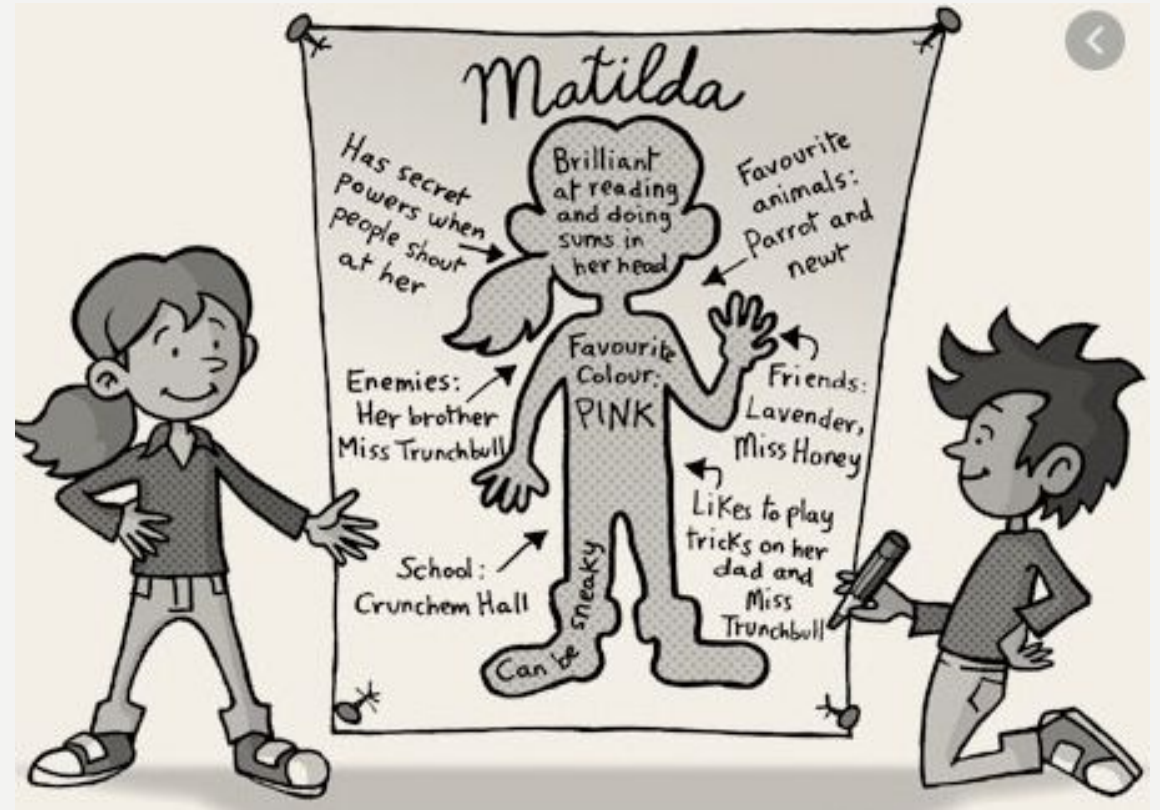 Matilda
Has secret
powers when
people shout
at her
Brilliant
at reading
and doing
sums in
her head
Favourite
animals:
Parrot and
newt
Enemies:
Her brother
Miss Trunchbull
Favourite
Colour:
PINK
Friends:
Lavender,
Miss Honey
School:
Crunchem Hall
Likes to play
tricks on her
dad and
Miss
Trunchbull
Can be sneaky